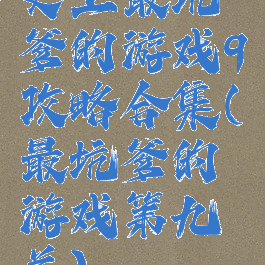 史上最坑
爹的游戏9
攻略合集(
最坑爹的
游戏第九
关)